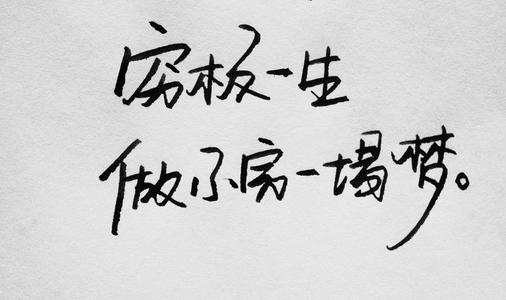 穷极一生
做不完一场梦。